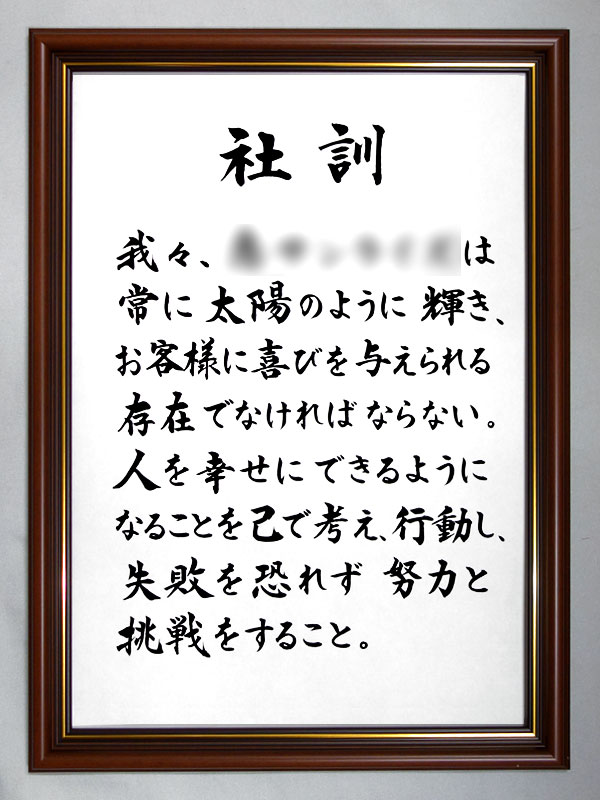 社訓
我々、は
常に太陽のように輝き、
お客様に喜びを与えられる
存在でなければならない。
人を幸せにできるように
なることを己で考え、行動し、
失敗を恐れず努力と
挑戦をすること。